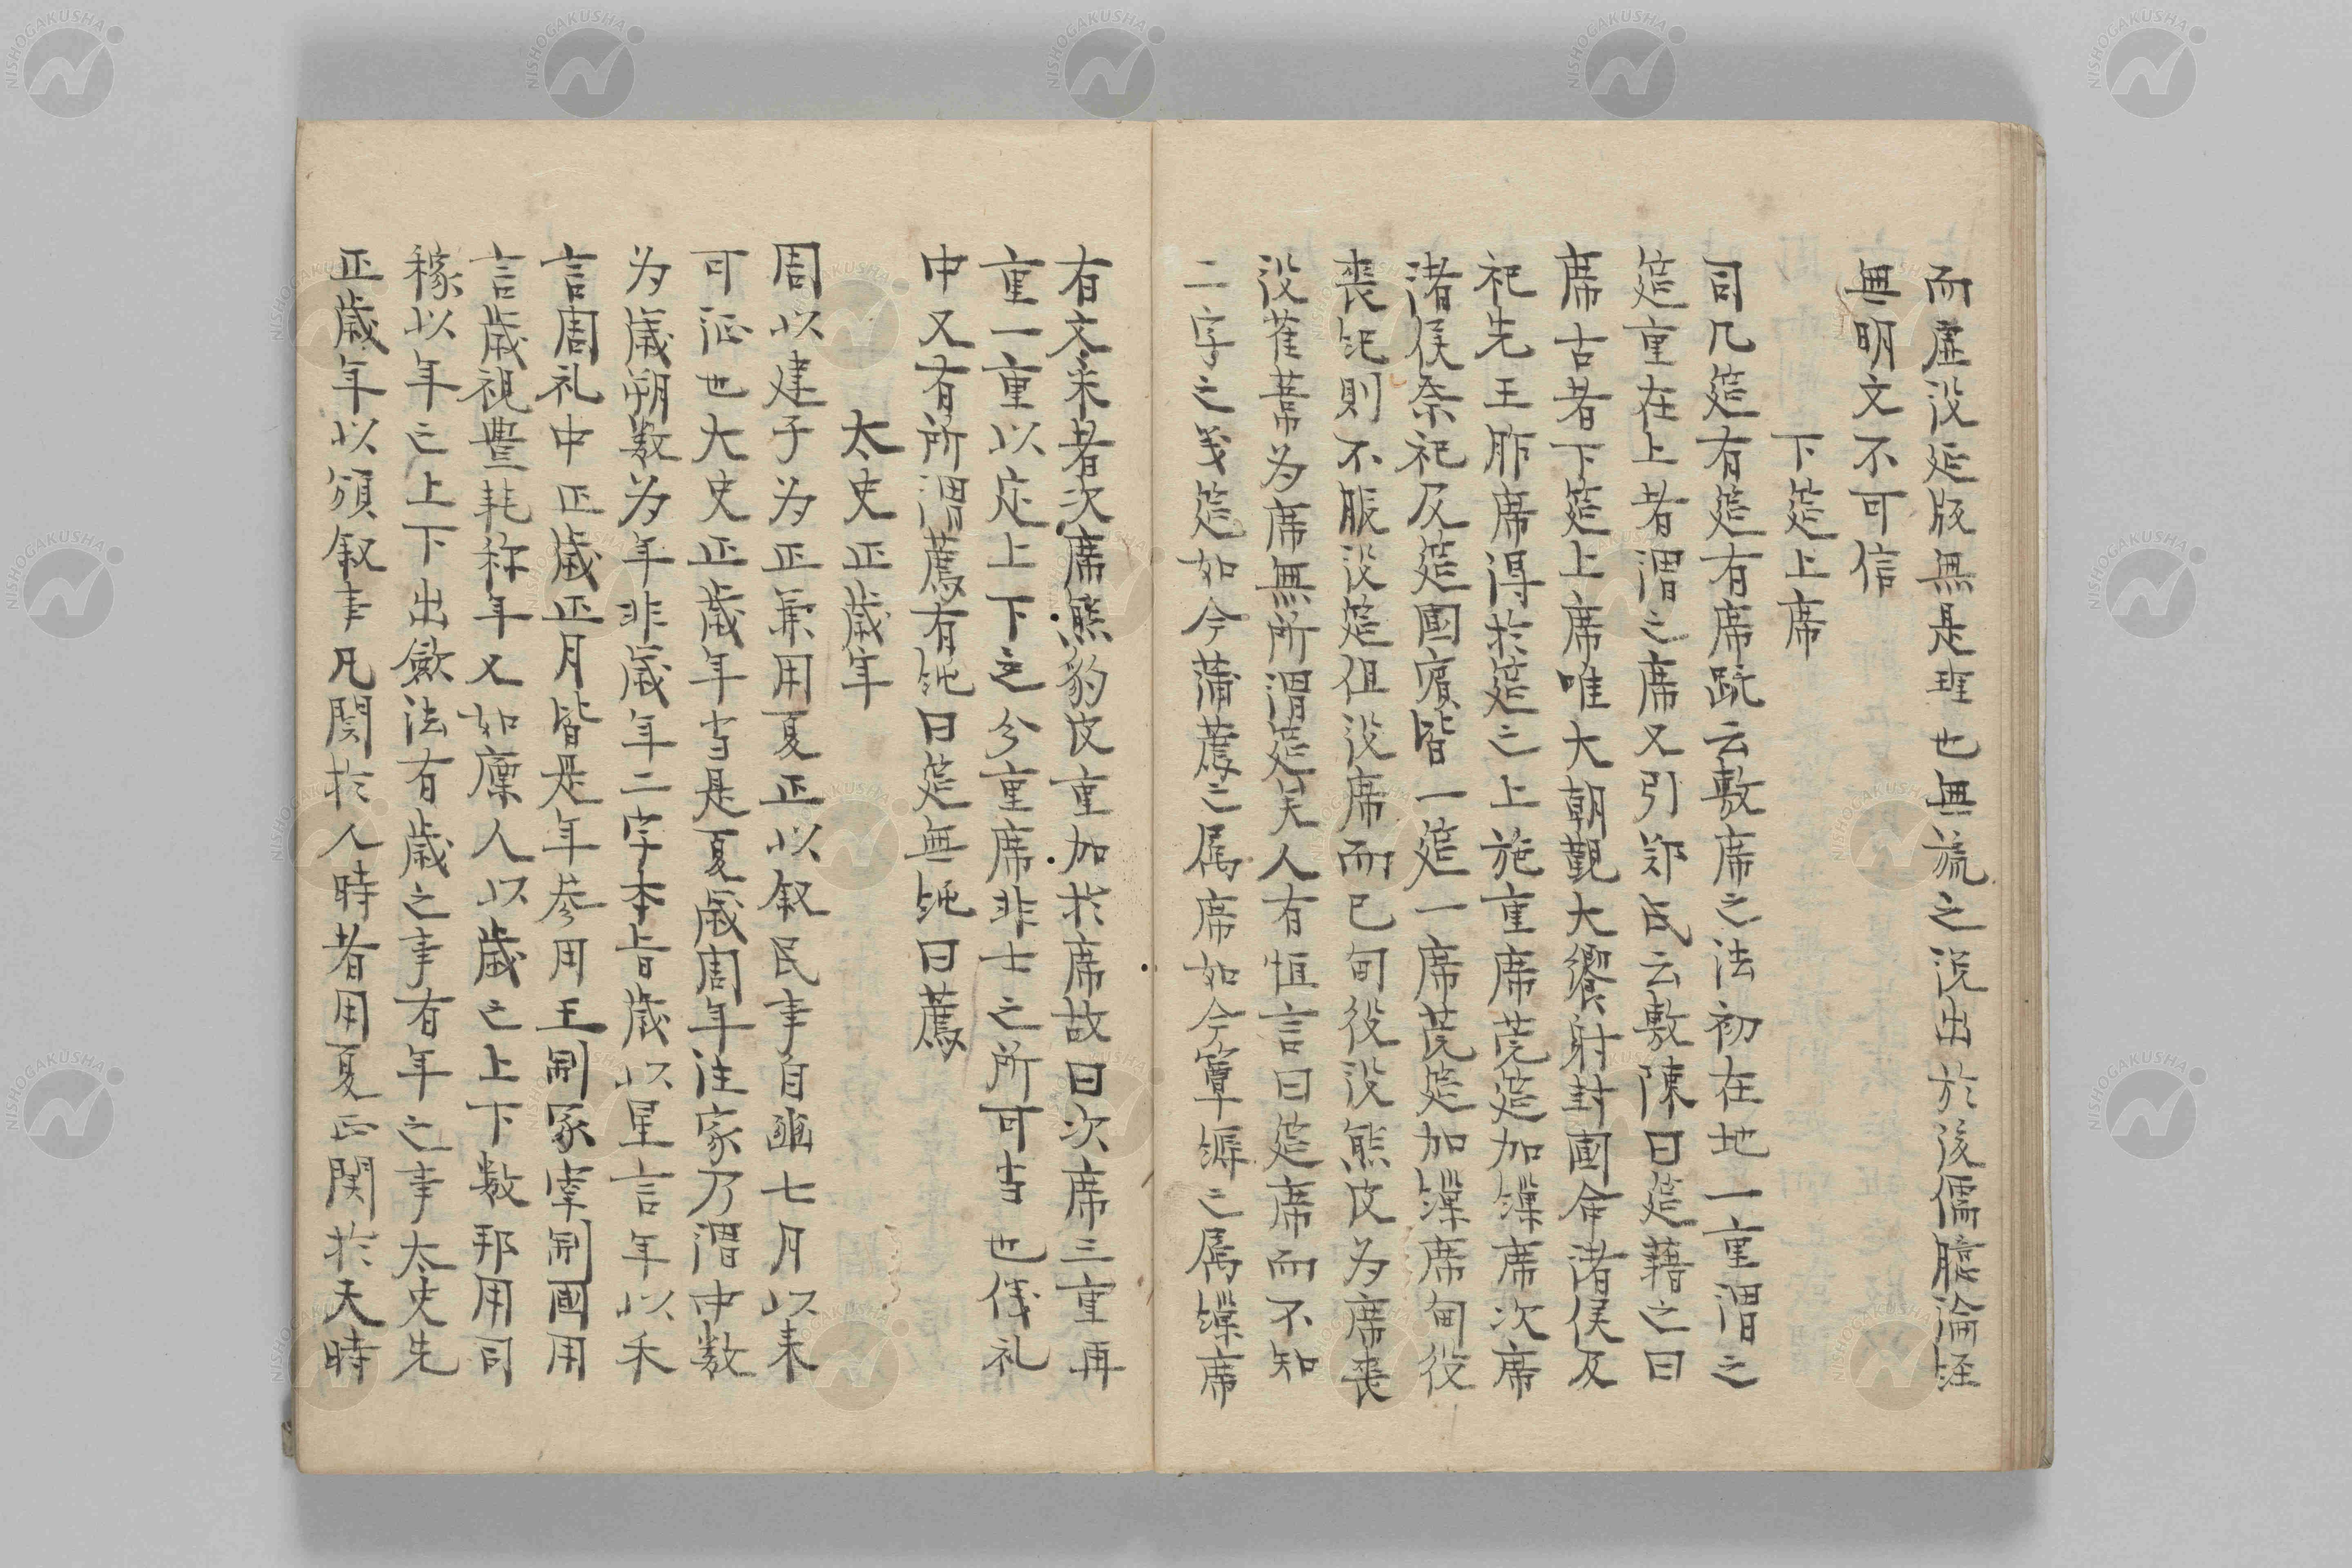 而虚設筵版無是理也無旒之説出於後儒臆論経
無明文不可信
下筵上席
司几筵有筵有席疏云敷席之法初在地一重謂之
筵重在上者謂之席又引郑氏云敷陳曰筵藉之曰
席古者下筵上席唯大朝覲大饗射封国命諸侯及
祀先王胙席得於筵之上施重席莞筵加繅席次席
諸侯祭祀及筵國賓皆一筵一席莞筵加繅席甸役
喪紀則不脹設筵但設席而已甸役設熊皮為席喪
設萑葦為席無所謂筵矣人有恒言曰筵席而不知
二字之義筵如今蒲薦之属席如今簟褥之属繅席
有文采者次席熊豹皮重加於席故曰次席三重再
重一重以定上下之分重席非士之所可当也儀礼
中又有所謂薦有純曰筵無純曰薦
太史正歳年
周以建子为正兼用夏正以叙民事自豳七月以来
可証也大史正歳年当是夏歳周年注家乃謂中数
为歳朔数为年非歳年二字本旨歳以星言年以禾
言周礼中正歳正月皆是年参用王制冢宰制國用
言歳視豊耗称年又如廩人以歳之上下数邦用司
稼以年之上下出歛法有歳之事有年之事太史先
正歳年以頒叙事凡関於人時者用夏正関於天時